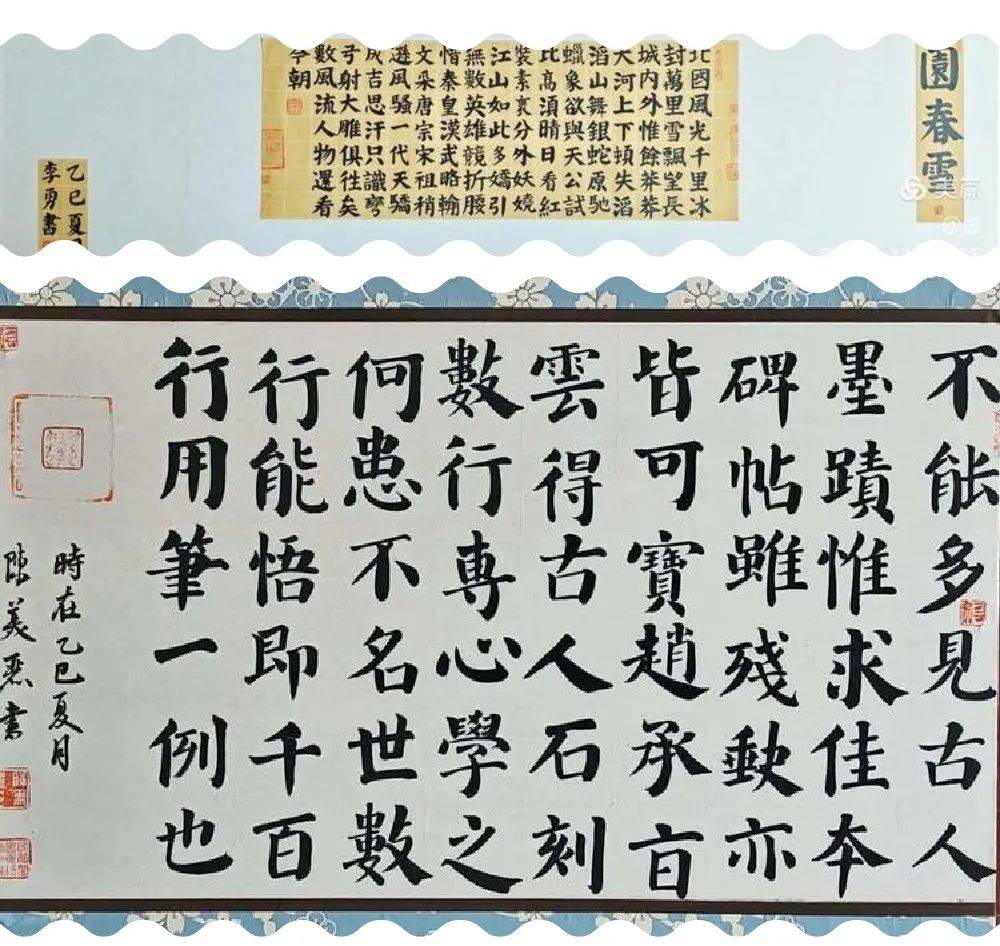 園春雪
北國風光千里冰
封萬里雪飄望長
城内外惟餘莽莽
大河上下頓失滔
滔山舞銀蛇原馳
蠟象欲與天公試
比高須晴日看紅
裝素裹分外妖嬈
江山如此多嬌引
無數英雄競折腰
惜秦皇漢武略輸
文采唐宗宋祖稍
遜風騷一代天驕
成吉思汗只識彎
弓射大雕俱往矣
數風流人物還看
今朝
乙巳夏
李勇書
美篇
不能多見古人
墨蹟惟求佳本
碑帖雖殘缺亦
皆可寶趙承旨
雲得古人石刻
數行專心學之
何患不名世數
行能悟即千百
行用筆一例也
時在乙巳夏月
陳美書